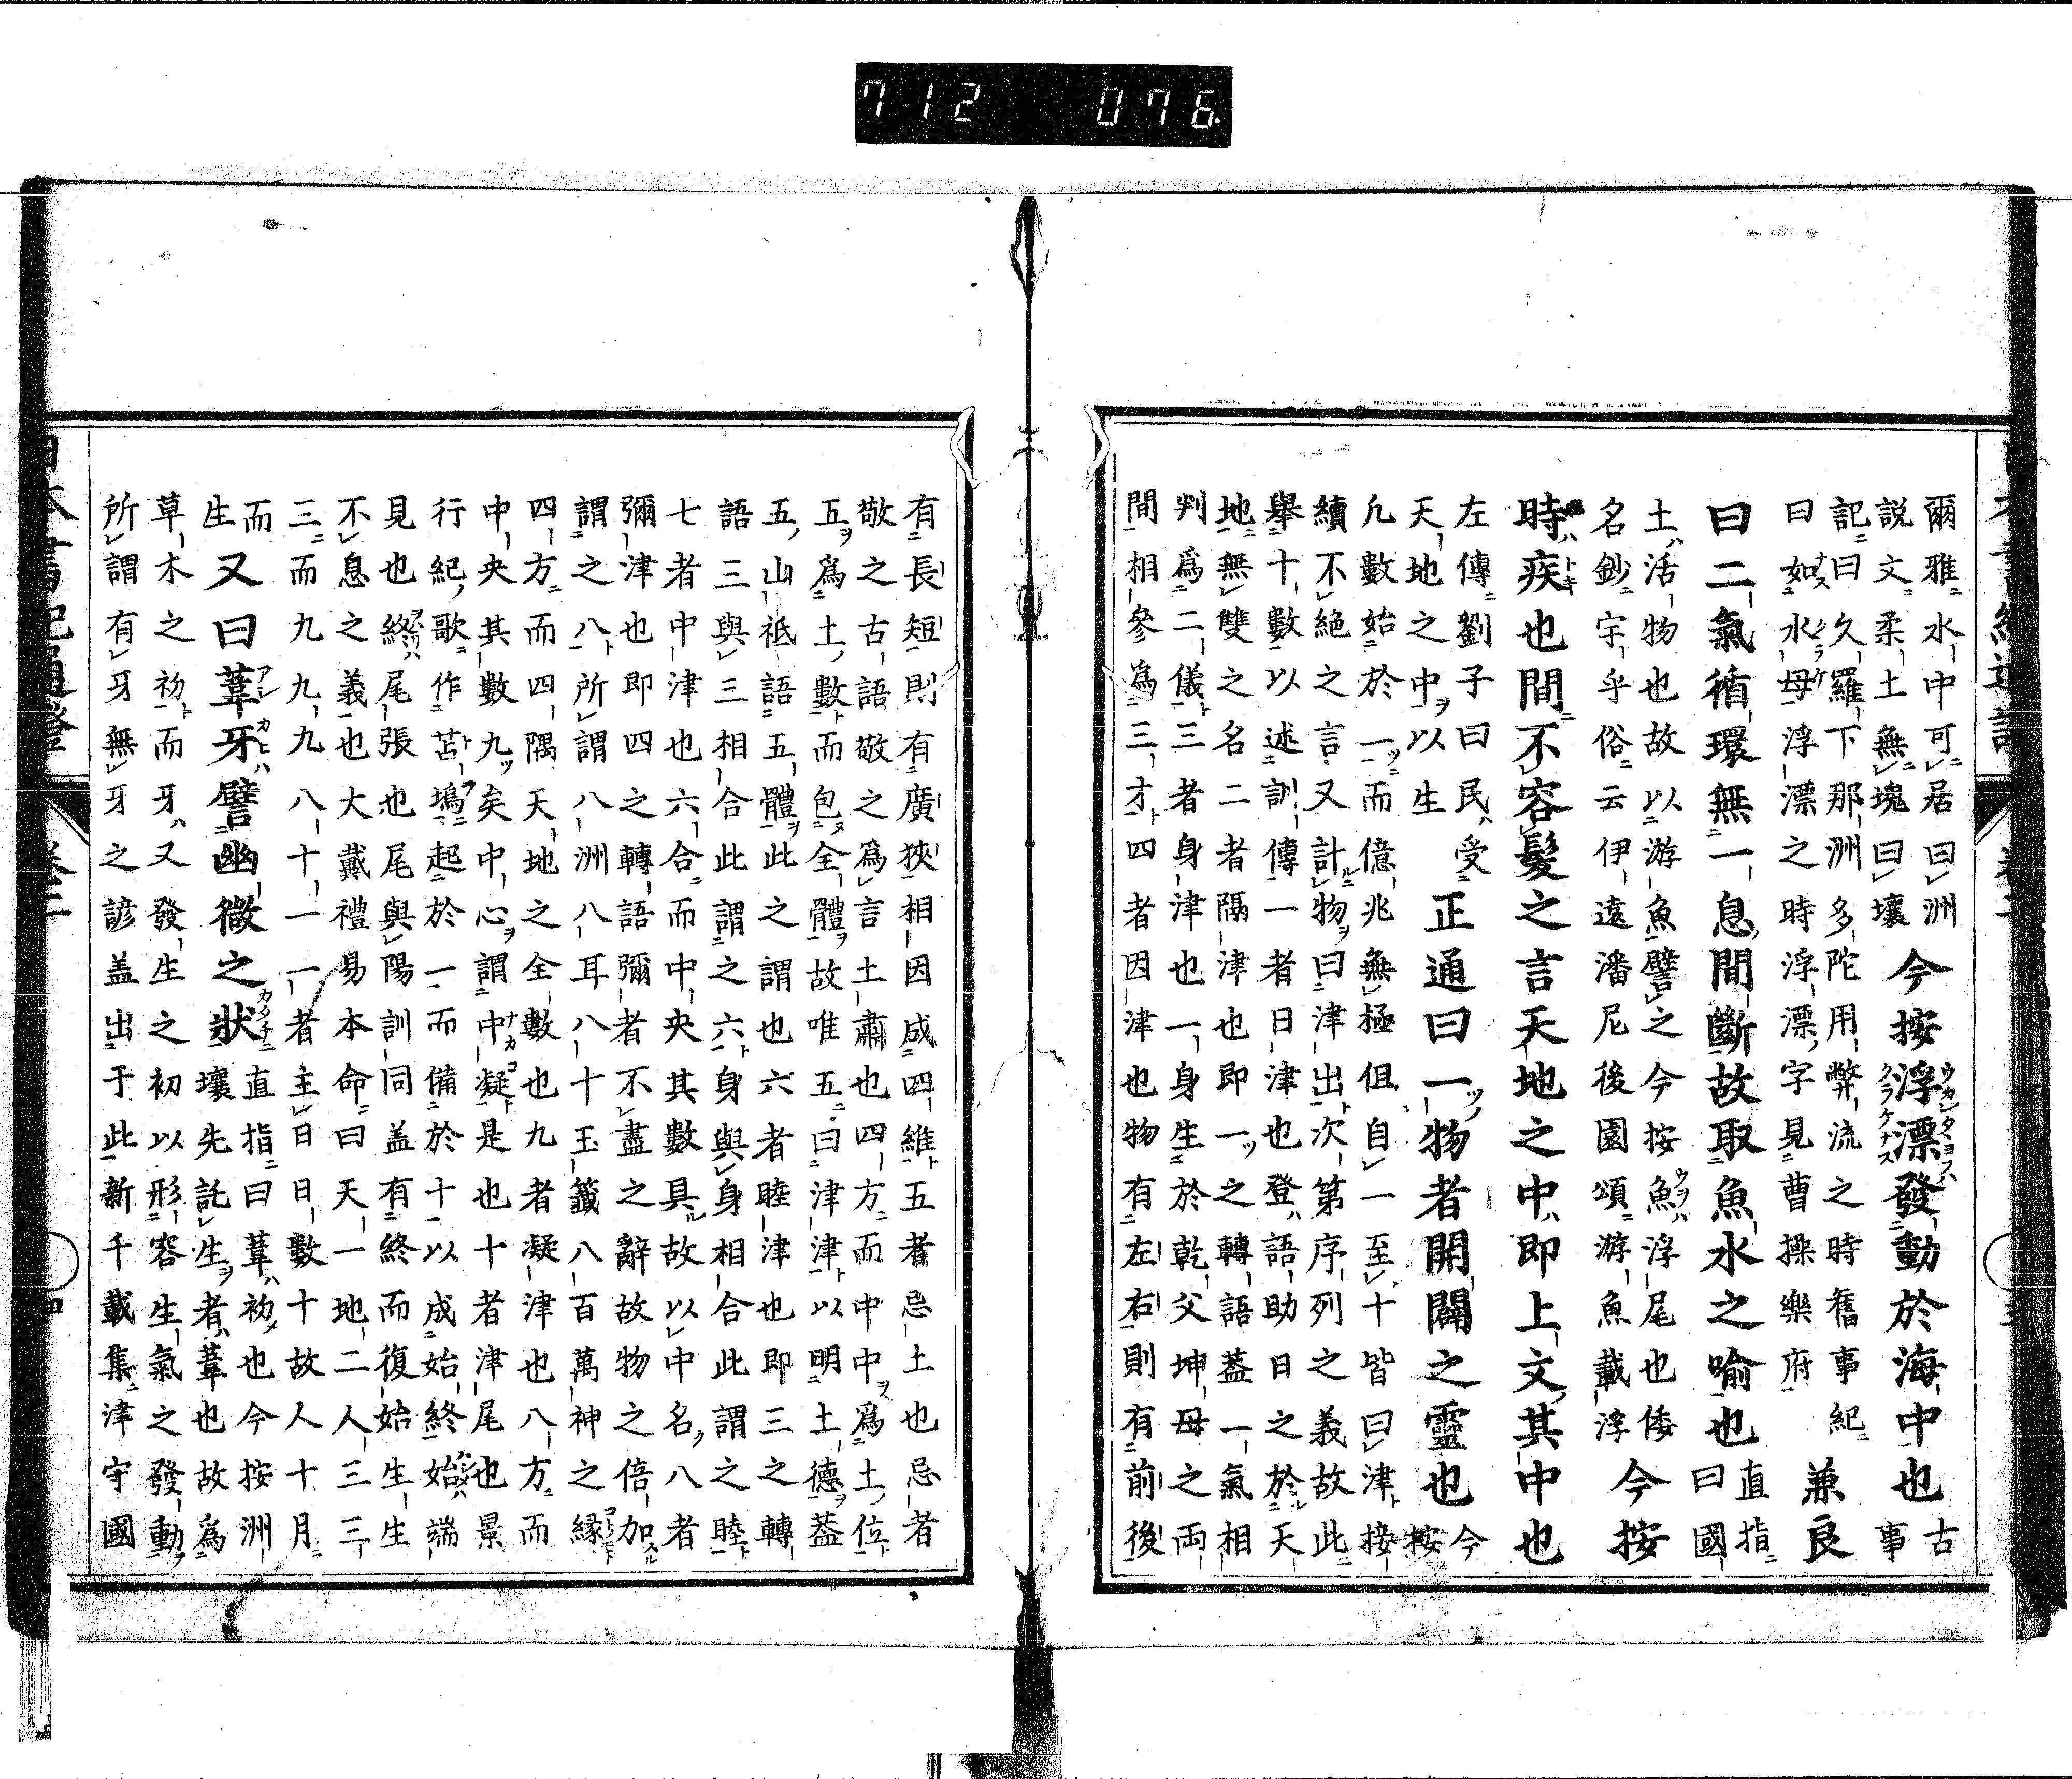 712 076
爾雅水中可居曰洲
説文柔土無塊曰壤
今按浮漂發動於海中也
古
事
記曰久羅下那洲多陀用弊流之時舊事紀
曰如水母浮漂之時浮漂字見曹操樂府
兼良
曰二氣循環無一息間斷故取魚水之喻也
直指
曰國
土活物也故以游魚譬之今按魚浮尾也倭
名鈔宇乎俗云伊遠潘尼後園頌游魚載浮
今按
時疾也間不容髮之言天地之中即上文其中也
左傳劉子曰民受
天地之中以生
正通曰一物者開闢之靈也
今
按
凡數始於一而億兆無極但自一至十皆曰津接
續不絶之言又計物曰津出次第序列之義故此
擧十數以述訓傳一者日津也登語助日之於天
地無雙之名二者隔津也即一之轉語葢一氣相
判爲二儀三者身津也一身生於乾父坤母之両
間相參爲三才四者因津也物有左右則有前後
有長短則有廣狹相因成四維五者忌土也忌者
敬之古語敬之爲言土肅也四方而中中爲土位
五爲土數而包全體故唯五曰津津以明土德葢
五山祗語五體此之謂也六者睦津也即三之轉
語三與三相合此謂之六身與身相合此謂之睦
七者中津也六合而中央其數具故以中名八者
彌津也即四之轉語彌者不盡之辭故物之倍加
謂之八所謂八洲八耳八十玉籤八百萬神之縁
四方而四隅天地之全數也九者凝津也八方而
中央其數九矣中心謂中凝是也十者津尾也景
行紀歌作苫塢起於一而備於十以成始終始端
見也終尾張也尾與陽訓同盖有終而復始生生
不息之義也大戴禮易本命曰天一地二人三三
三而九九九八十一一者主日日數十故人十月
而
生
又曰葦牙譬幽微之狀
直指曰葦初也今按洲
壤先託生者葦也故爲
草木之初而牙又發生之初以形容生氣之發動
所謂有牙無牙之諺盖出于此新千載集津守國